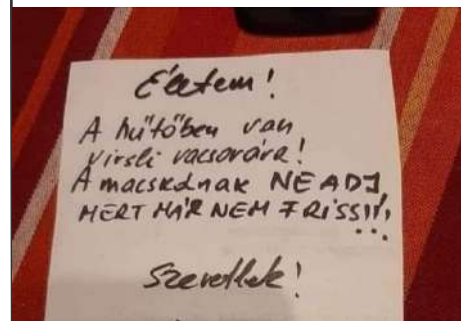 Életem!
A hűtőben van
virsli vacsorára!
A macskának NE ADJ,
MERT MÁR NEM FRISS!!!
...
Szeretlek!